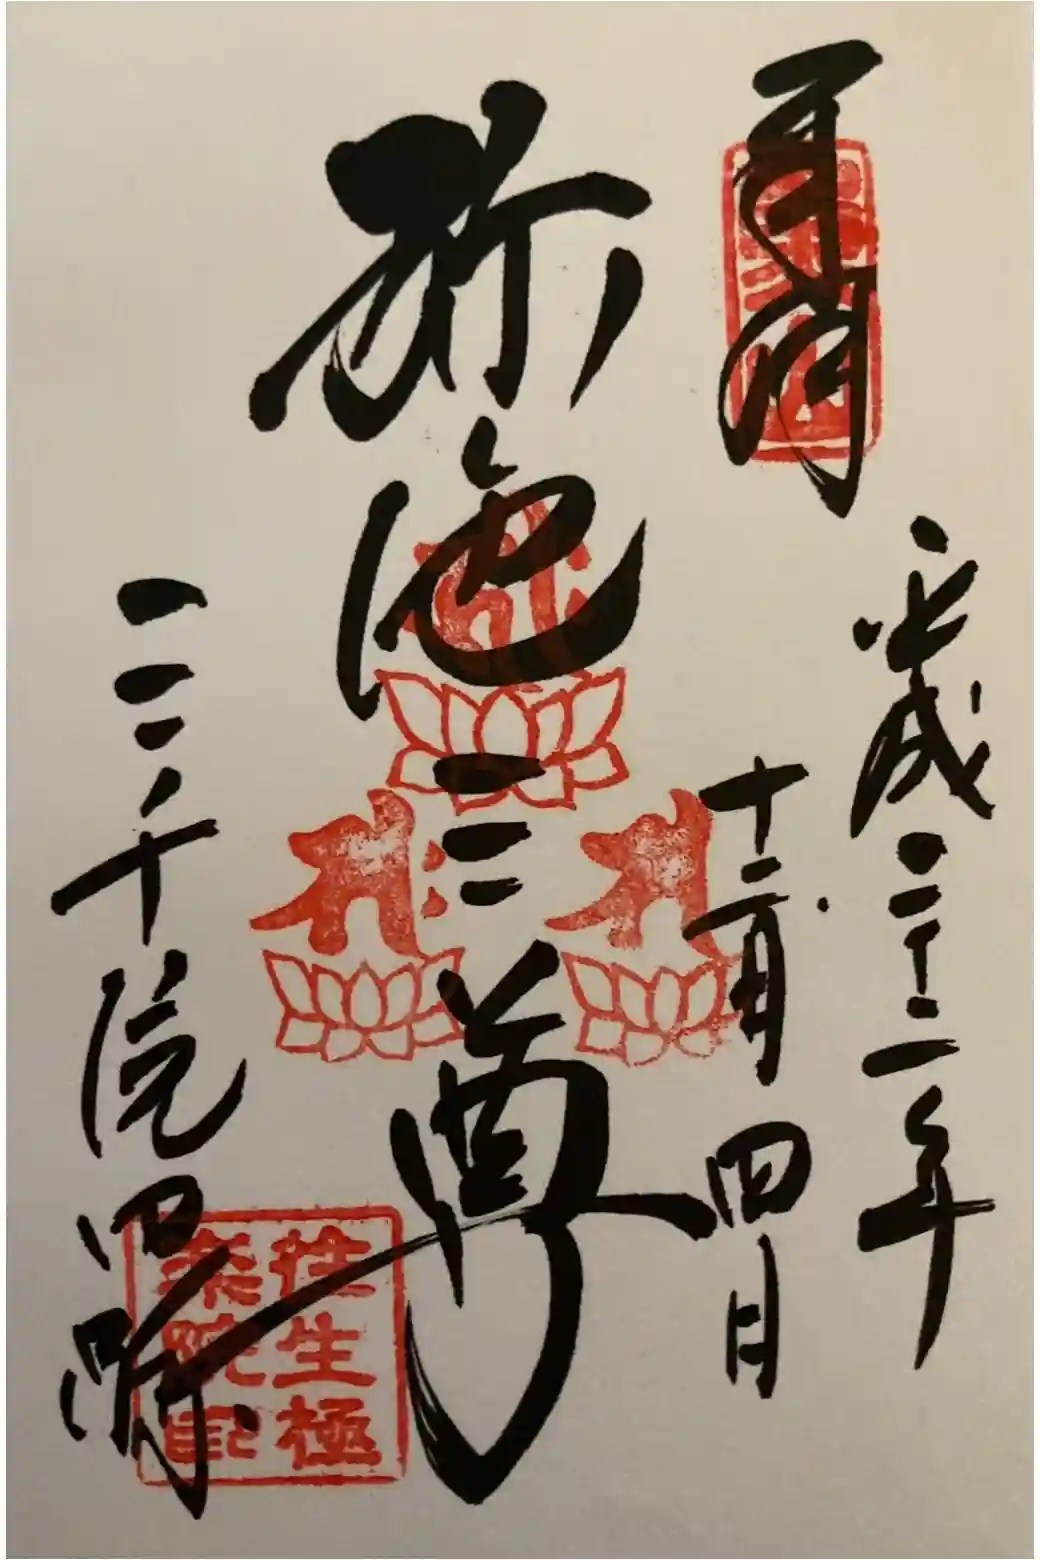 平成二十三年
十二月四日
弥陀三尊
三千院門跡
往生極
楽院印